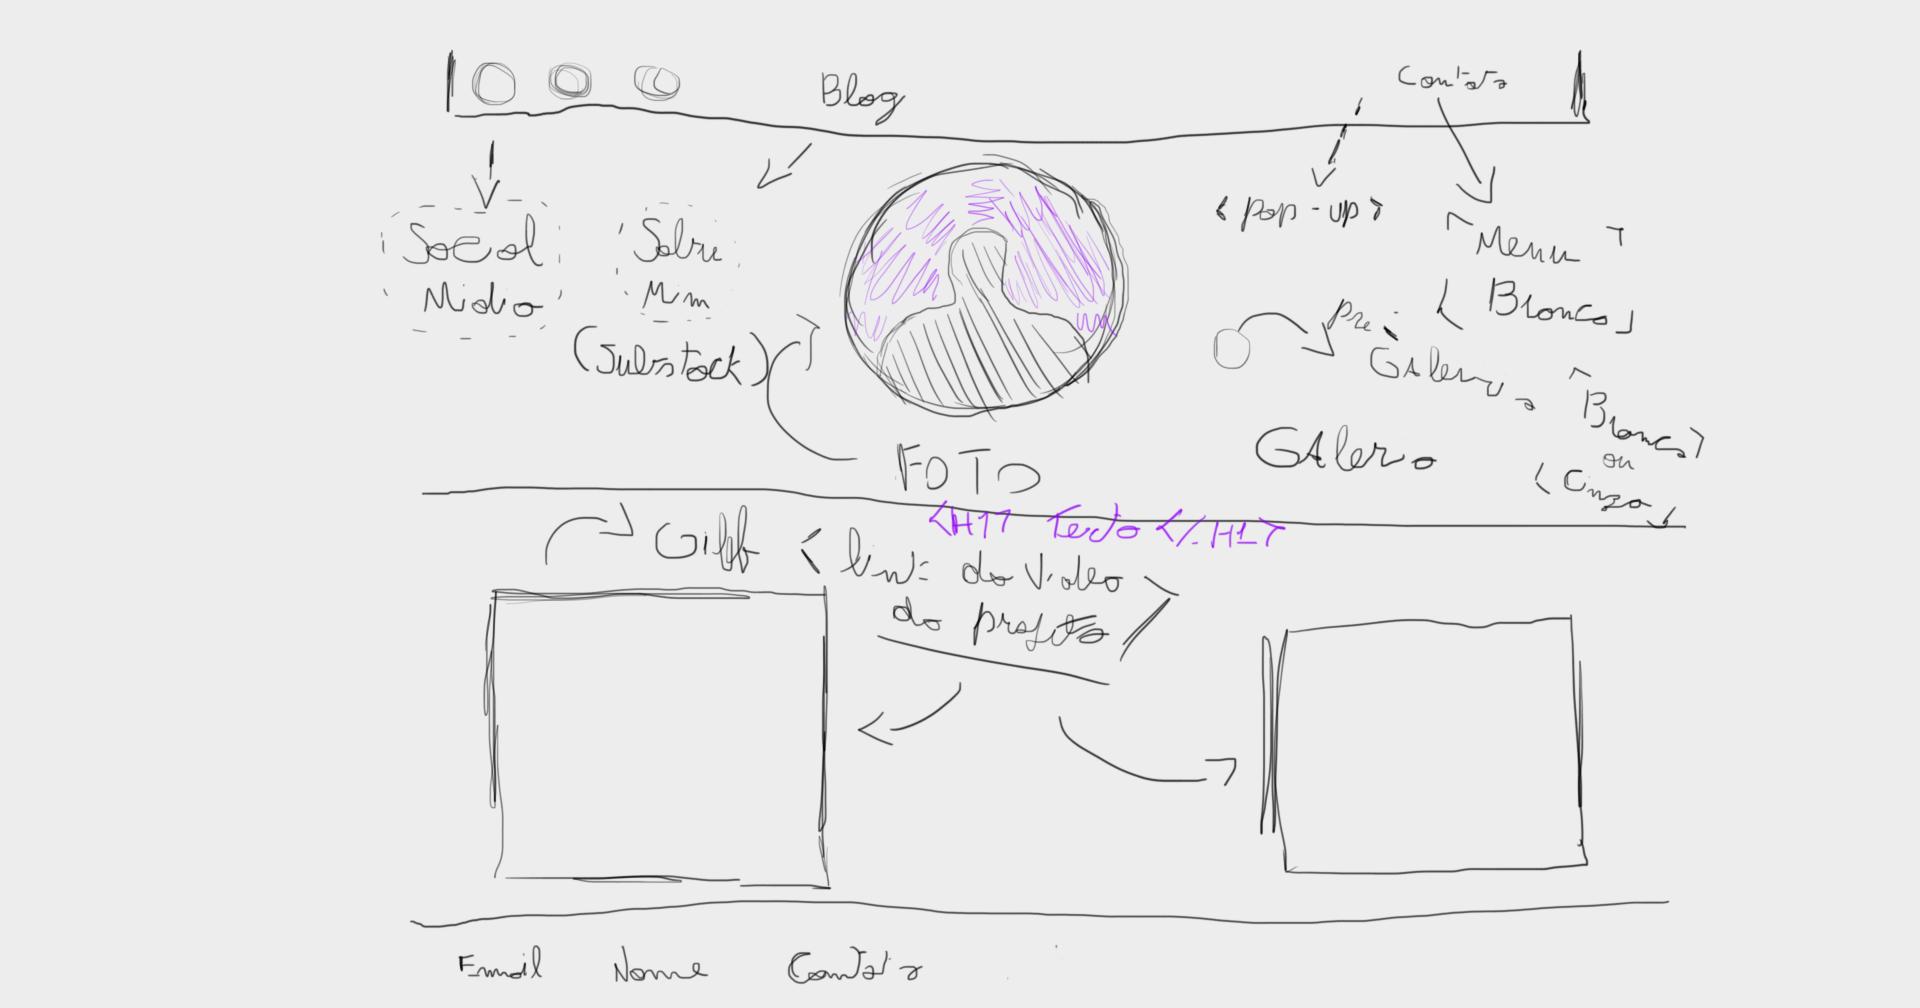 Blog
Contato
Social
Midia
Sobre
Mim
(Substack)
< pop-up >
Menu
< Branco >
pre
Galeria
< Branco >
ou
< Cinza >
Galeria
FOTO
<H1> Texto </H1>
Giff
< link do video
do projeto />
Email Nome Contato